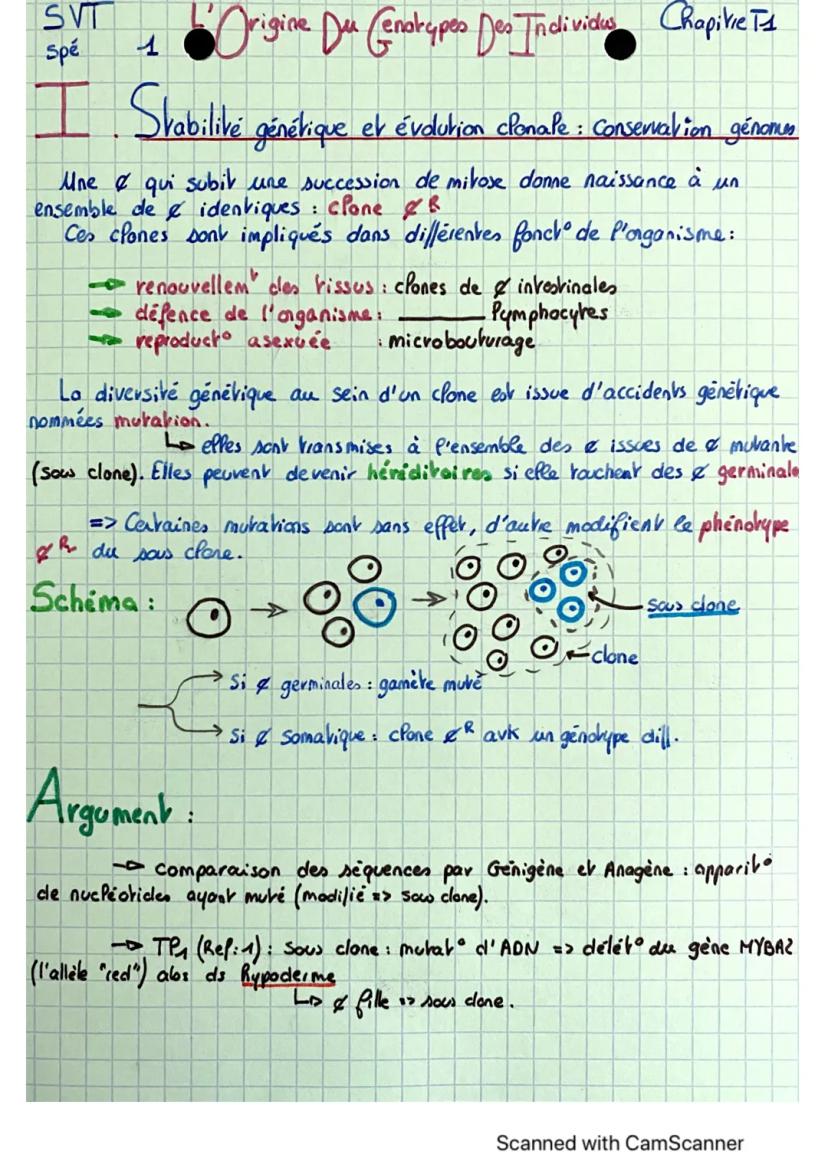 SVT L'Origine Du Genotypes Des Individus Chapitre T1
Spé 1
I. Stabilité génétique et évolution clonale : conservation génomes
Une ¢ qui subit une succession de mitose donne naissance à un
ensemble de ¢ identiques : clone ¢R
Ces clones sont impliqués dans différentes fonct° de l'organisme :
renouvellemt des tissus : clones de ¢ intestinales
défence de l'organisme : ______ lymphocytes
reproduct° asexuée : microbouturage
La diversité génétique au sein d'un clone est issue d'accidents génétique
nommées mutation.
↳ elles sont transmises à l'ensemble des ¢ issues de ¢ mutante
(sous clone). Elles peuvent devenir héréditaires si elle touchent des ¢ germinale
=> Certaines mutations sont sans effet, d'autre modifient le phénotype
¢R du sous clone.
Schéma :
sous clone
clone
Si ¢ germinales : gamète muté
Si ¢ somatique : clone ¢R avk un génotype diff.
Argument :
→ comparaison des séquences par Génigène et Anagène : apparit°
de nucléotides ayant muté (modifié => sous clone).
→ TP1 (Ref:1) : sous clone : mutat° d'ADN => délét° du gène MYBA2
(l'allèle "red") alos ds Hypoderme
↳ ¢ fille => sous clone.
Scanned with CamScanner